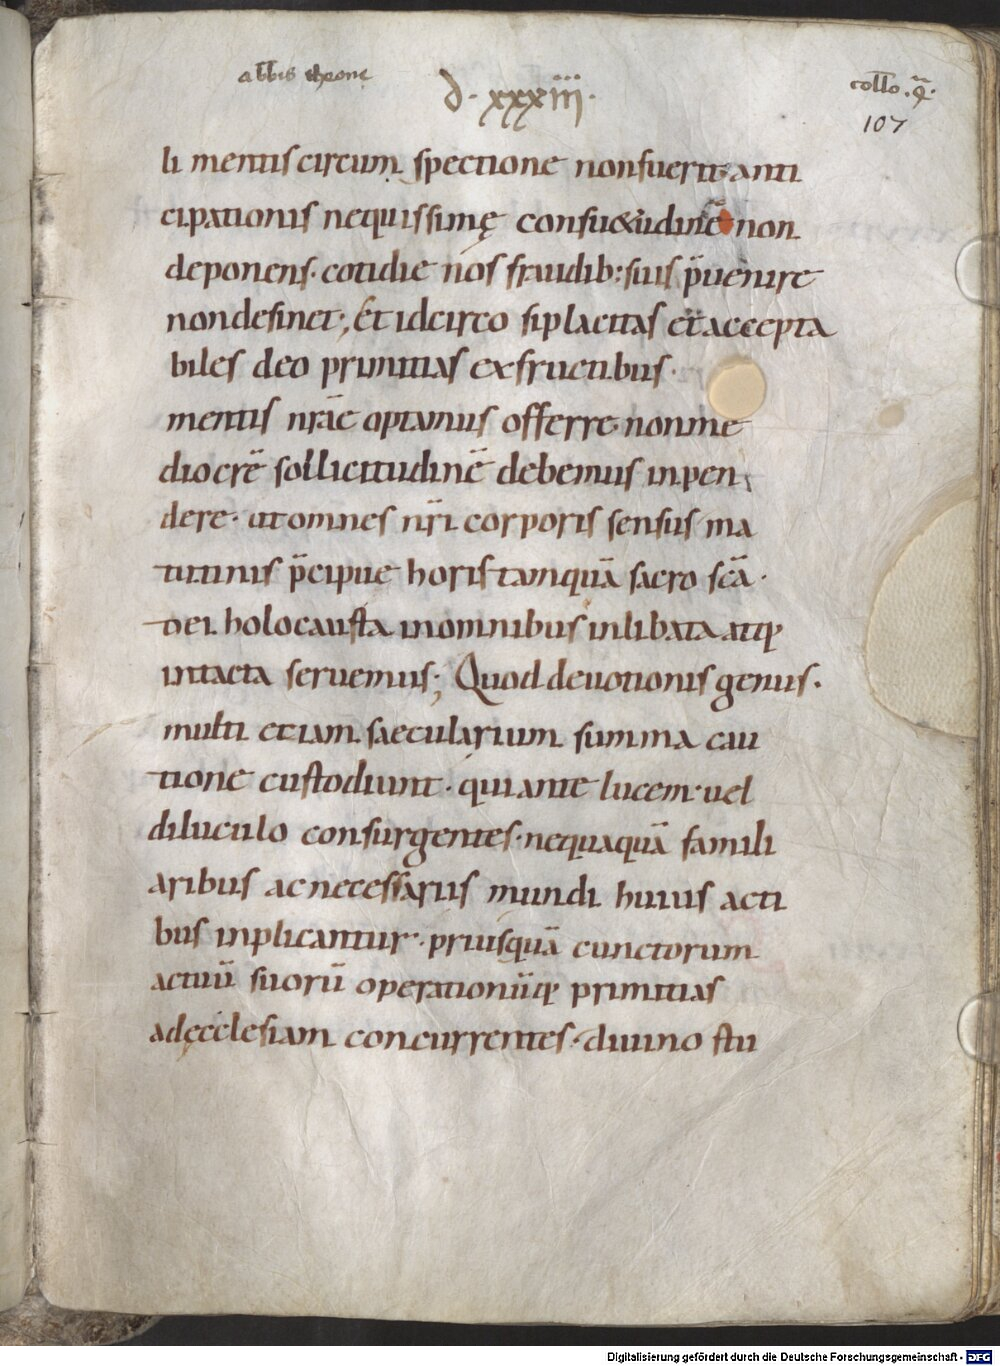 abb̅is theonę
d· xxxiii·
collo̅.q̅·
107
li mentis circum spectione non fuerit anti
cipationis nequissimę consu&udinē non
deponens· cotidie nos fraudib; suis p̄uenire
non desinet; Et idcirco si placitas et accepta
biles deo primitias ex fructibus·
mentis nr̄ae optamus offerre· non me
diocrē sollicitudinē debemus inpen
dere· ut omnes nr̄i corporis sensus ma
tutinis p̄cipue horis tamquā sacro scā·
dei holocausta in omnibus inlibata atq;
intacta seruemus; Quod deuotionis genus·
multi etiam saecularium summa cau
tione custodiunt· qui ante lucem· uel
diluculo consurgentes· nequaquā famili
aribus ac necessariis mundi huius acti
bus inplicantur· priusquā cunctorum
actuū suorū operationūq; primitias
ad ecclesiam concurrentes· diuino stu
Digitalisierung gefördert durch die Deutsche Forschungsgemeinschaft - DFG